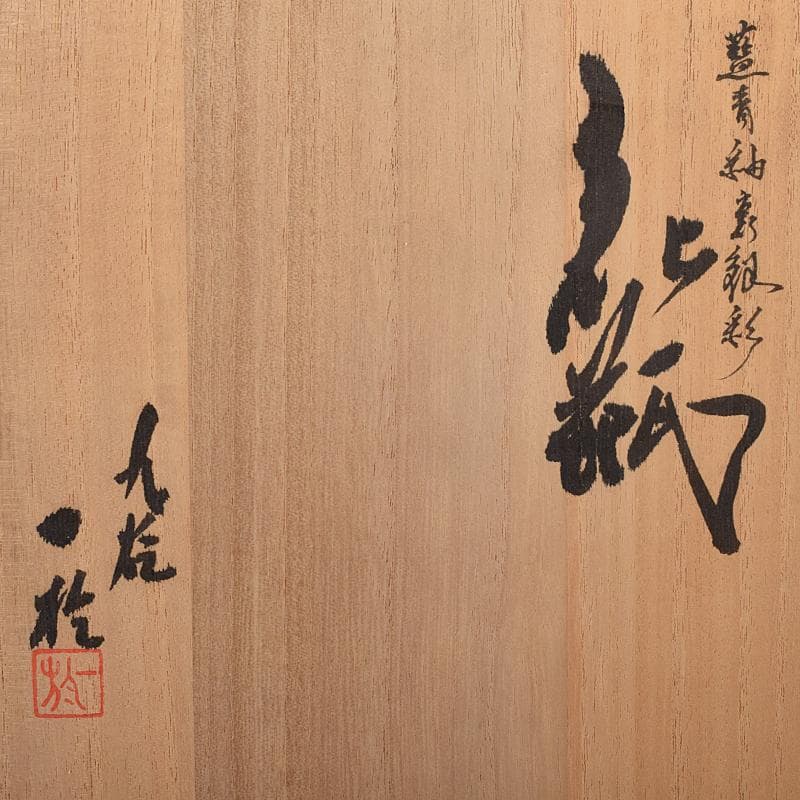 藍青釉裏銀彩
花瓶
九谷
一於
一於